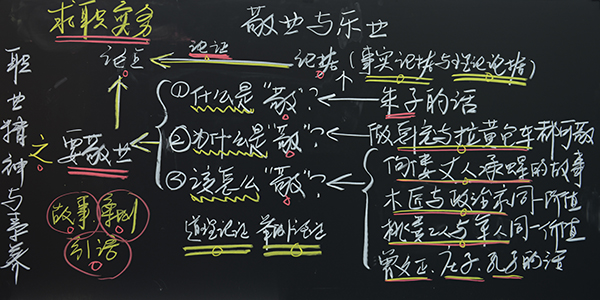 求职实务
敬业与乐业
职业精神与素养
论点
论证
论据（事实论据与理论论据）
要敬业
之
①什么是“敬”？
朱子的话
②为什么是“敬”？
做总统与拉黄包车都可敬
③该怎么“敬”？
佝偻丈人承蜩的故事
木匠与政治家同一价值
挑粪工人与军人同一价值
曾文正、庄子、孔子的话
故事
事例
引语
道理论证 举例论证